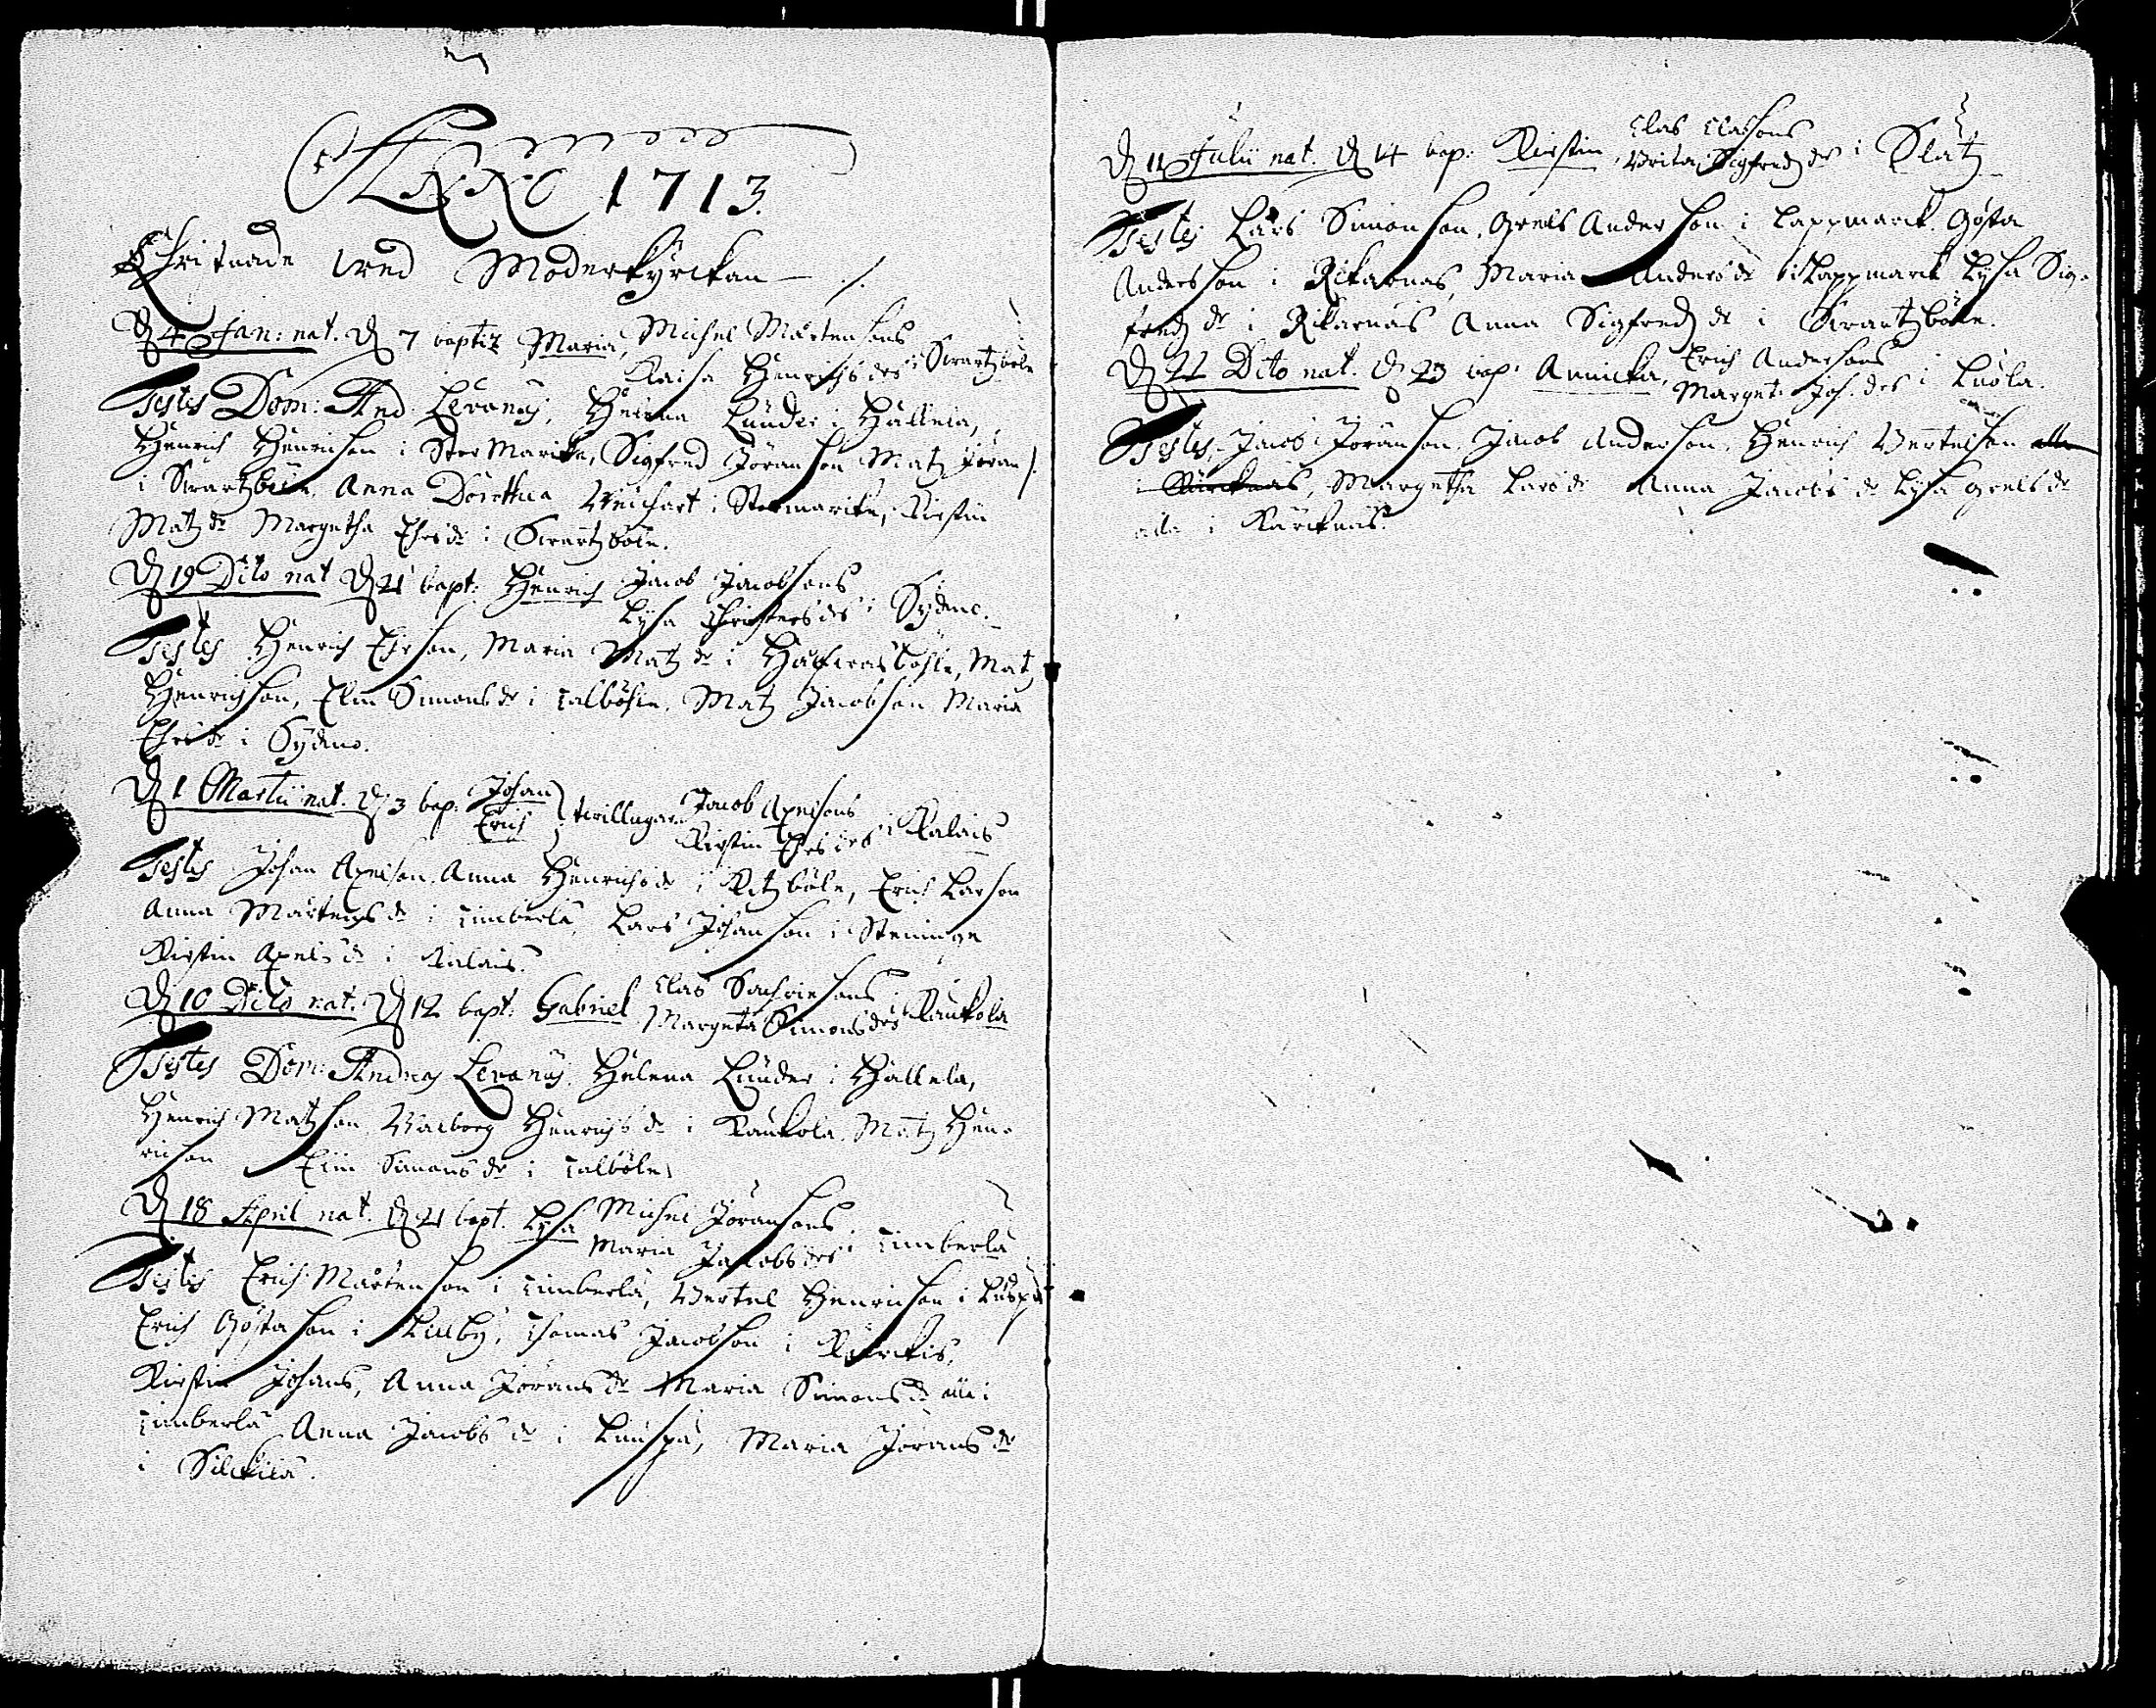 ANNO 1713.
Christnade wed Moderkÿrckan
D 4 Jan: nat. D 7 baptiz Maria, Michel Mårtensons
Kaisa Henrichsdrs i Swartzböle
Testes Dom: And. Levanus, Helena Lunder i Hällela,
Henrich Henrichson i Stor Maricke, Sigfred Jöranson Matz Jöran
i Swartzböle, Anna Dorothea i Stormaricke, Kirstin
Matz dr Margetha Ehrs dr i Swartzböle.
D 19 Dito nat D 21 bapt: Henrich Jacob Jacobsons
Lÿsa Christersdrs i Sÿdmo.
Testes Henrich Ehrson, Maria Matz dr i, Matz
Henrichson, Elin Simonsdr i Talböhle, Matz Jacobson Maria
Ehrs dr i Sÿdmo.
D 1 Martii nat. D 3 bap. Johan
Erich twillingar Jacob Axelsons
Kirstin Ehrsdrs i Kalais
Testes Johan Axelson. Anna Henrichsdr i Kitzböle, Erich Larson
Anna Mårtensdr i Timberla, Lars Johanson i Steninge
Kirstin Axelsdr i Kalais.
D 10 Dito nat. D 12 bapt: Gabriel Clas Sachriesons
Margeta Simonsdrs i Kaukola
Testes Dom: Andreas Levanus. Helena Lunder i Hällela,
Henrich Matzson Walborg Henrichsdr i Kaukola Matz Hen-
richson Elin Simonsdr i Talböle
D 18 April nat. D 21 bapt. Lÿsa Michel Jöransons
Maria Jacobsdrs i Timberla
Testes Erich Mårtenson i Timberla, Bertel Henrichson i
Erich Göstason i Lillbÿ, Thomas Jacobson i
Kirstin Johans, Anna Jöransdr Maria Simonsdr alla i
Timberla Anna Jacobsdr i Luuspä, Maria Jöransdr
i Silckilä.
D 11 Julii nat. D 14 bap: Kirstin, Clas Clasons
Brita Sigfredzdr i Slätz
Testes Lars Simonson, Grels Anderson i Lappmarck. Gösta
Anderson i Rikarnäs, Maria Andersdr i Lappmarck Lÿsa Sig-
fredz dr i Rikarnäs Anna Sigfredz dr i Swartzböle.
D 21 Dito nat. D 23 bap: Annicka, Erich Andersons
Marget: Joh. drs i Luola.
Testes, Jacob Jöranson Jacob Anderson, Henrich Bertelson alla
i Kärcknäs, Margetha Larsdr Anna Jacobsdr Lÿsa Grelsdr
alla i Kärcknäs